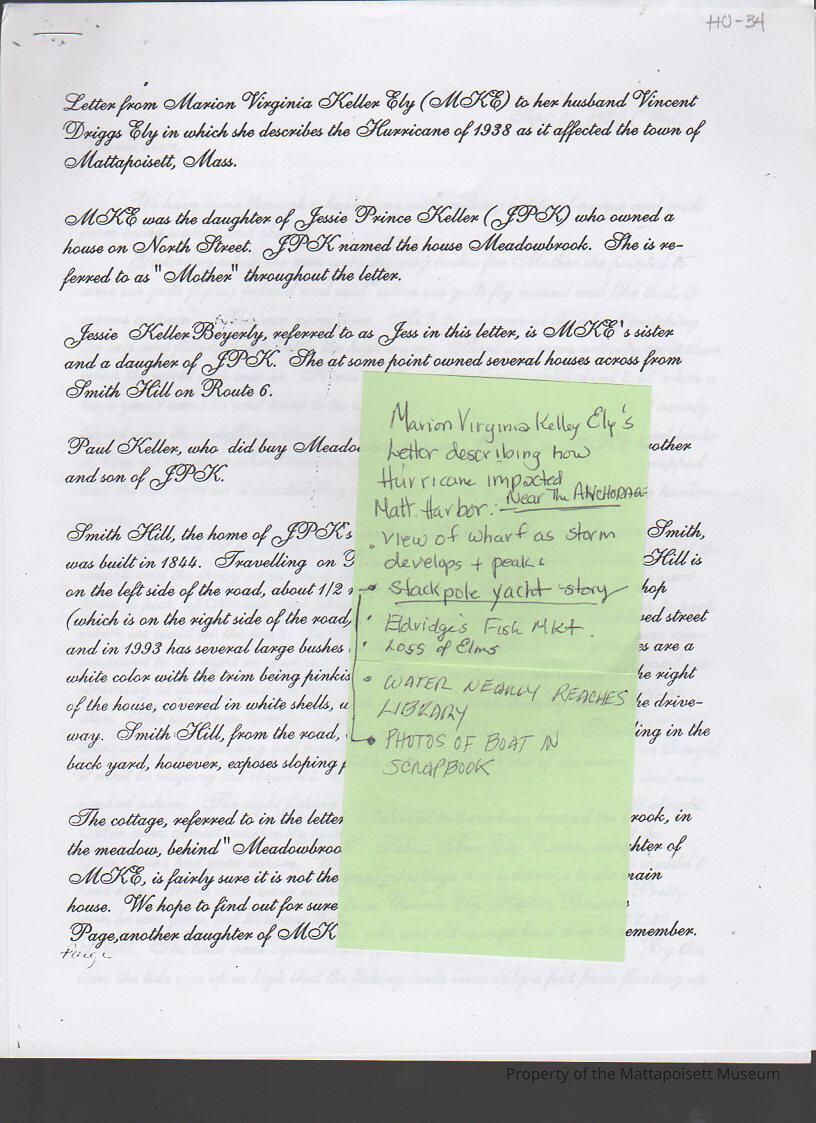 HO-34
Letter from Marion Virginia Keller Ely (MKE) to her husband Vincent
Driggs Ely in which she describes the Hurricane of 1938 as it affected the town of
Mattapoisett, Mass.
MKE was the daughter of Jessie Prince Keller (JPK) who owned a
house on North Street. JPK named the house Meadowbrook. She is re-
ferred to as "Mother" throughout the letter.
Jessie Keller Beyerly, referred to as Jess in this letter, is MKE's sister
and a daugher of JPK. She at some point owned several houses across from
Smith Hill on Route 6.
Paul Keller, who did buy Meado
other
and son of JPK.
Smith Hill, the home of JPK's
Smith,
was built in 1844. Travelling on
Hill is
on the left side of the road, about 1/2
hop
(which is on the right side of the road,
ed street
and in 1993 has several large bushes
es are a
white color with the trim being pinkis
he right
of the house, covered in white shells,
he drive-
way. Smith Hill, from the road,
ing in the
back yard, however, exposes sloping
The cottage, referred to in the letter
rook, in
the meadow, behind "Meadowbroo
hter of
MKE, is fairly sure it is not the
main
house. We hope to find out for sure
Page,another daughter of MK
emember.
Paige
Marion Virginia Kelley Ely's
Letter describing how
Hurricane impacted
Matt. Harbor. - Near The ANCHORAGE
• View of wharf as storm
develops + peaks
• Stackpole yacht story
• Eldridge's Fish Mkt.
• Loss of Elms
• WATER NEARLY REACHES
LIBRARY
• PHOTOS OF BOAT IN
SCRAPBOOK
Property of the Mattapoisett Museum